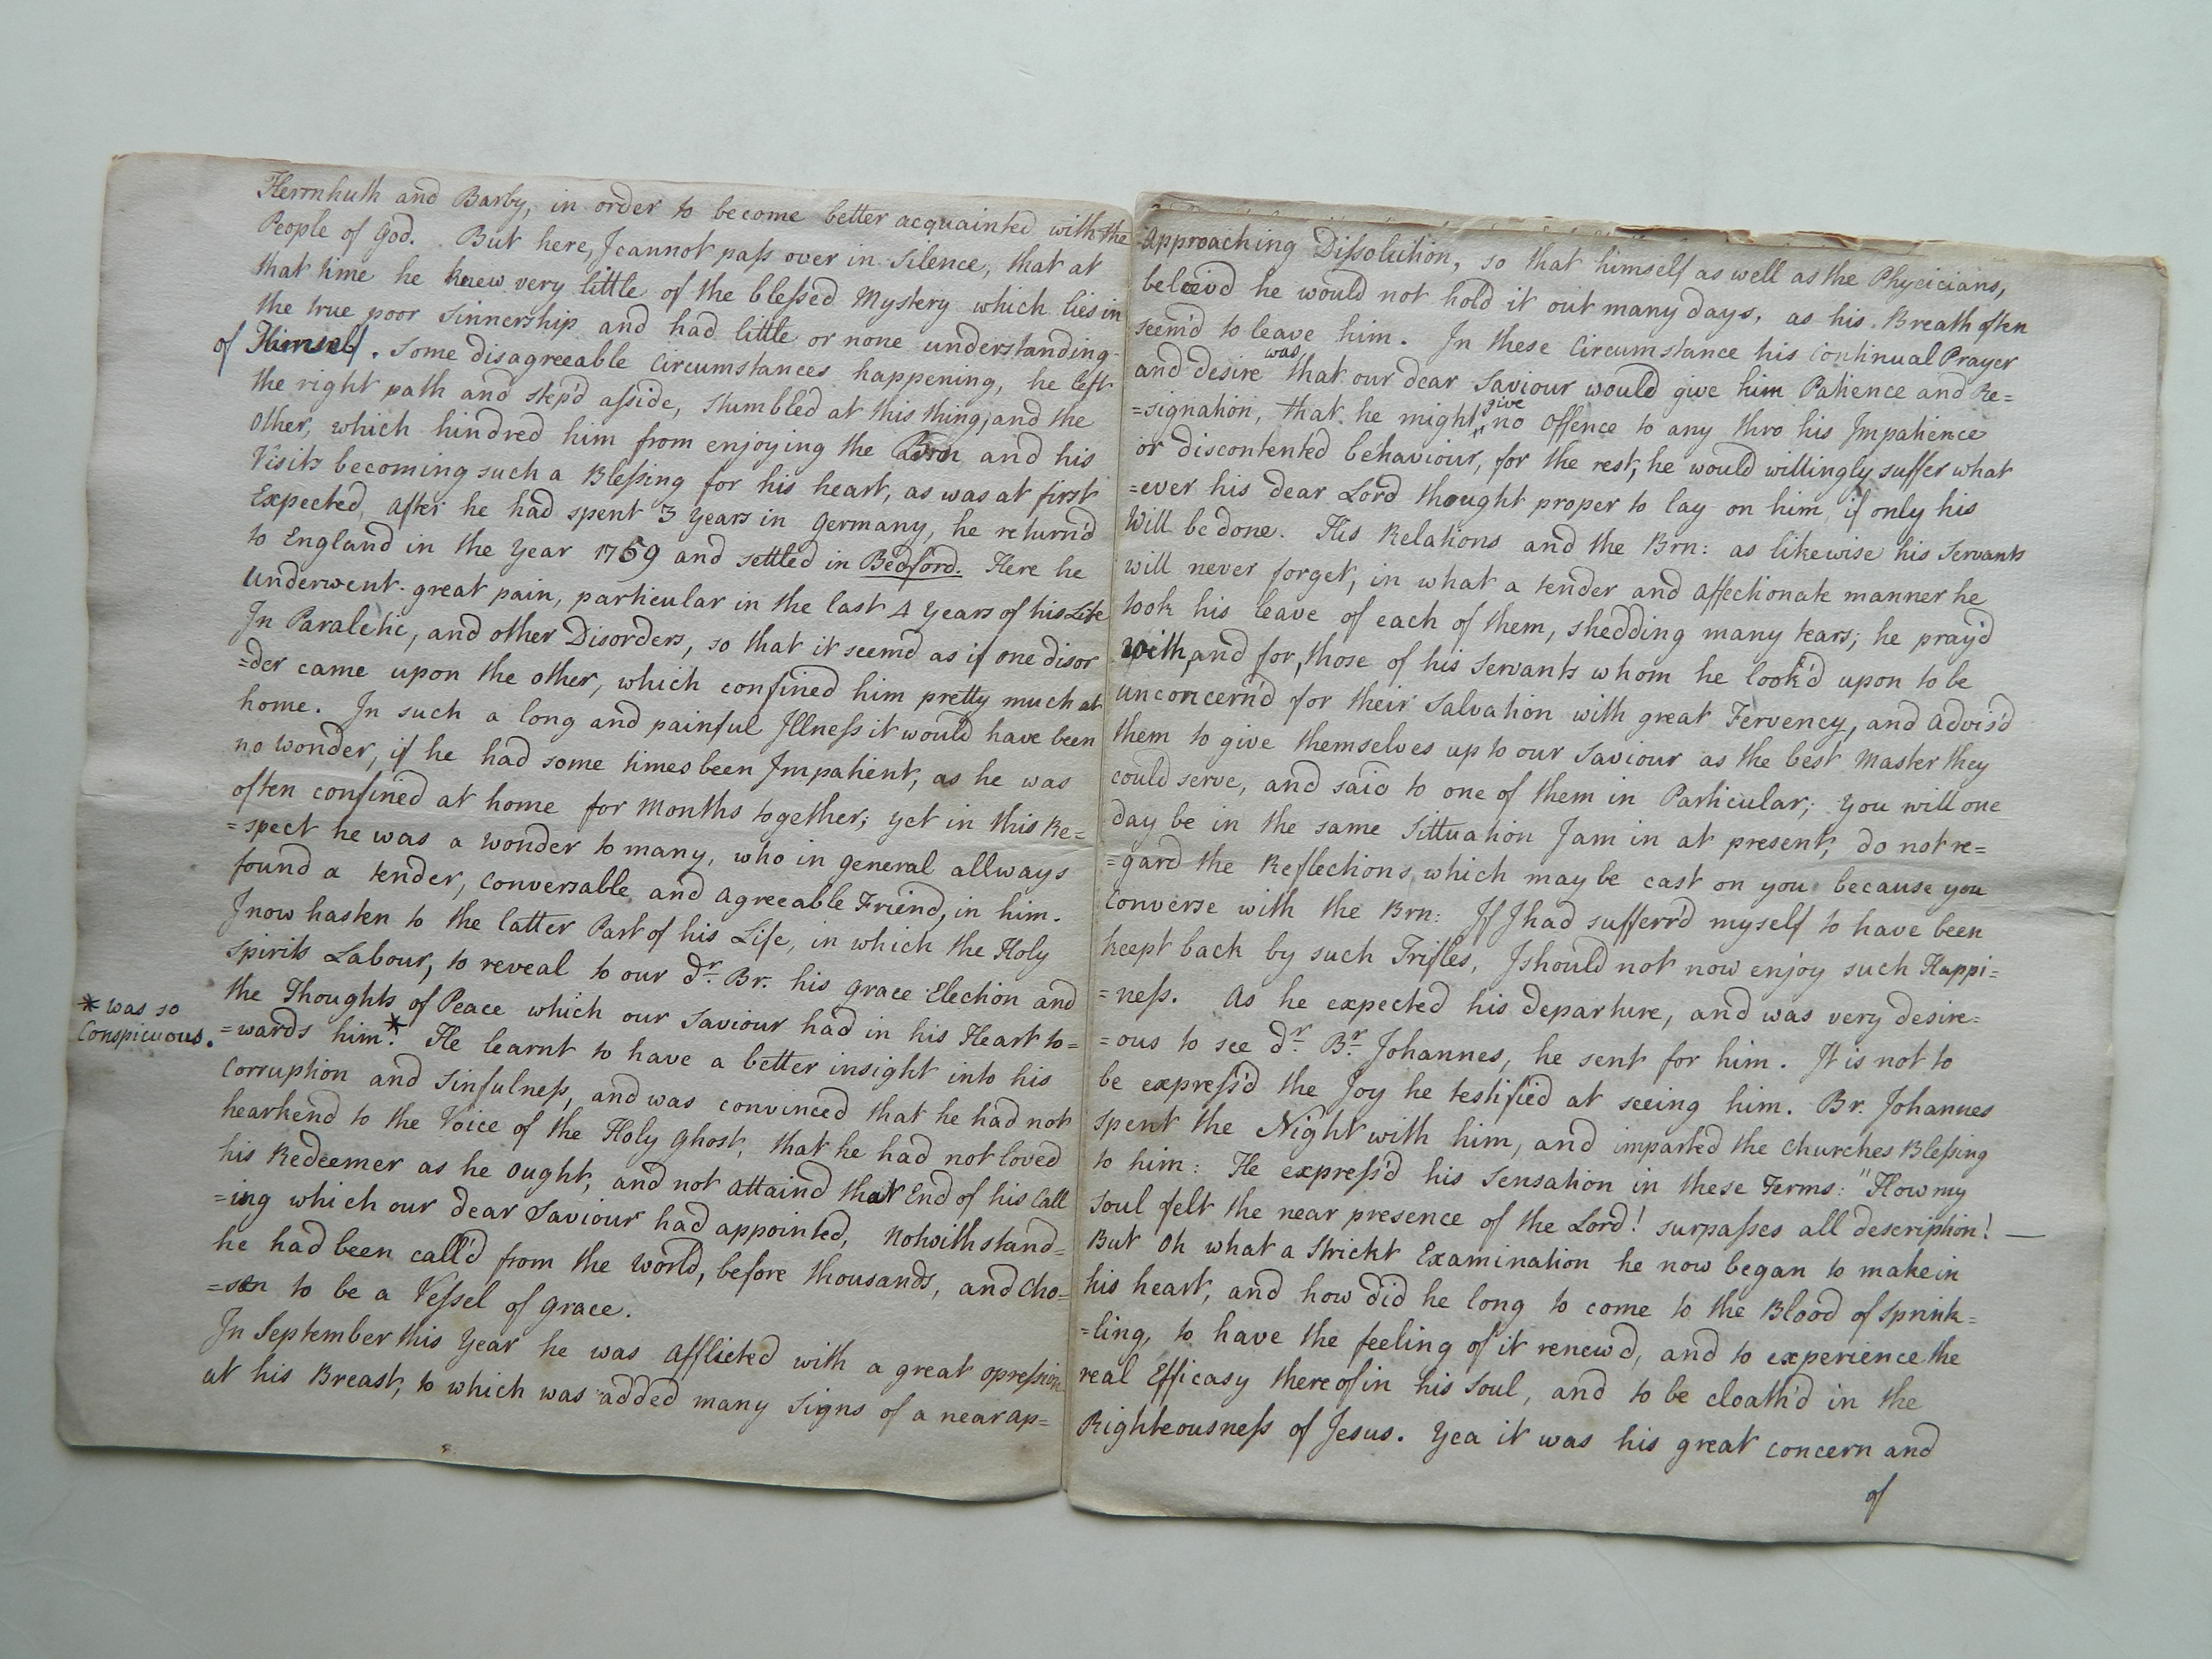 Herrnhuth and Barby, in order to become better acquainted with the
People of God. But here, I cannot paſs over in Silence, that at
that time he knew very little of the bleſsed Mystery which lies in
the true poor Sinnership and had little or none understanding
of Himself. Some disagreeable Circumstances happening, he left
the right path and step'd aſside, stumbled at this thing, and the
Other, which hindred him from enjoying the Brn and his
Visits becoming such a Bleſsing for his heart, as was at first
Expected, After he had spent 3 Years in Germany, he return'd
to England in the Year 1769 and settled in Bedford. Here he
Underwent great pain, particular in the last 4 Years of his Life
In Paraletic, and other Disorders, so that it seem'd as if one disor
=der came upon the other, which confined him pretty much at
home. In such a long and painful Illneſs it would have been
no wonder, if he had some times been Impatient, as he was
often confined at home for Months together; yet in this Re=
=spect he was a wonder to many, who in general allways
found a tender, Conversable and Agreeable Friend, in him.
I now hasten to the latter Part of his Life, in which the Holy
Spirits Labour, to reveal to our dr. Br. his Grace Election and
the Thoughts of Peace which our Saviour had in his Heart to=
* was so
Conspicuous.
=wards him.* He learnt to have a better insight into his
Corruption and Sinfulneſs, and was convinced that he had not
hearkend to the Voice of the Holy Ghost, that he had not loved
his Redeemer as he ought, and not attaind that End of his Call
=ing which our dear Saviour had appointed, Notwithstand=
he had been call'd from the World, before thousands, and Cho=
=sen to be a Veſsel of Grace.
In September this Year he was Afflicted with a great opreſsion
at his Breast, to which was added many Signs of a near ap=
Approaching Diſsolution, so that himself as well as the Phycicians,
beleivd he would not hold it out many days, as his Breath often
seem'd to leave him. In these Circumstance his Continual Prayer
and desire was that our dear Saviour would give him Patience and Re=
=signation, that he might give no Offence to any thro his Impatience
or discontented behaviour, for the rest, he would willingly suffer what
=ever his dear Lord thought proper to lay on him, if only his
Will be done. His Relations and the Brn: as likewise his Servants
will never forget, in what a tender and Affectionate manner he
took his leave of each of them, shedding many tears; he pray'd
with, and for, those of his Servants whom he look'd upon to be
unconcern'd for their Salvation with great Fervency, and advis'd
them to give themselves up to our Saviour as the best Master they
could serve, and said to one of them in Particular; You will one
day be in the same Sittuation I am in at present, do not re=
=gard the Reflections which may be cast on you because you
Converse with the Brn: If I had sufferr'd myself to have been
keept back by such Trifles, I should not now enjoy such Happi=
=neſs. As he expected his departure, and was very desire=
=ous to see dr. Br. Johannes, he sent for him. It is not to
be expreſs'd the Joy he testified at seeing him. Br. Johannes
spent the Night with him, and imparted the Churches Bleſsing
to him: He expreſs'd his Sensation in these Terms: "How my
Soul felt the near presence of the Lord! surpaſses all description! —
But Oh what a Strickt Examination he now began to make in
his heart, and how did he long to come to the Blood of Sprink=
=ling, to have the feeling of it renew'd, and to experience the
real Efficasy thereof in his Soul, and to be cloath'd in the
Righteousneſs of Jesus. Yea it was his great concern and
of